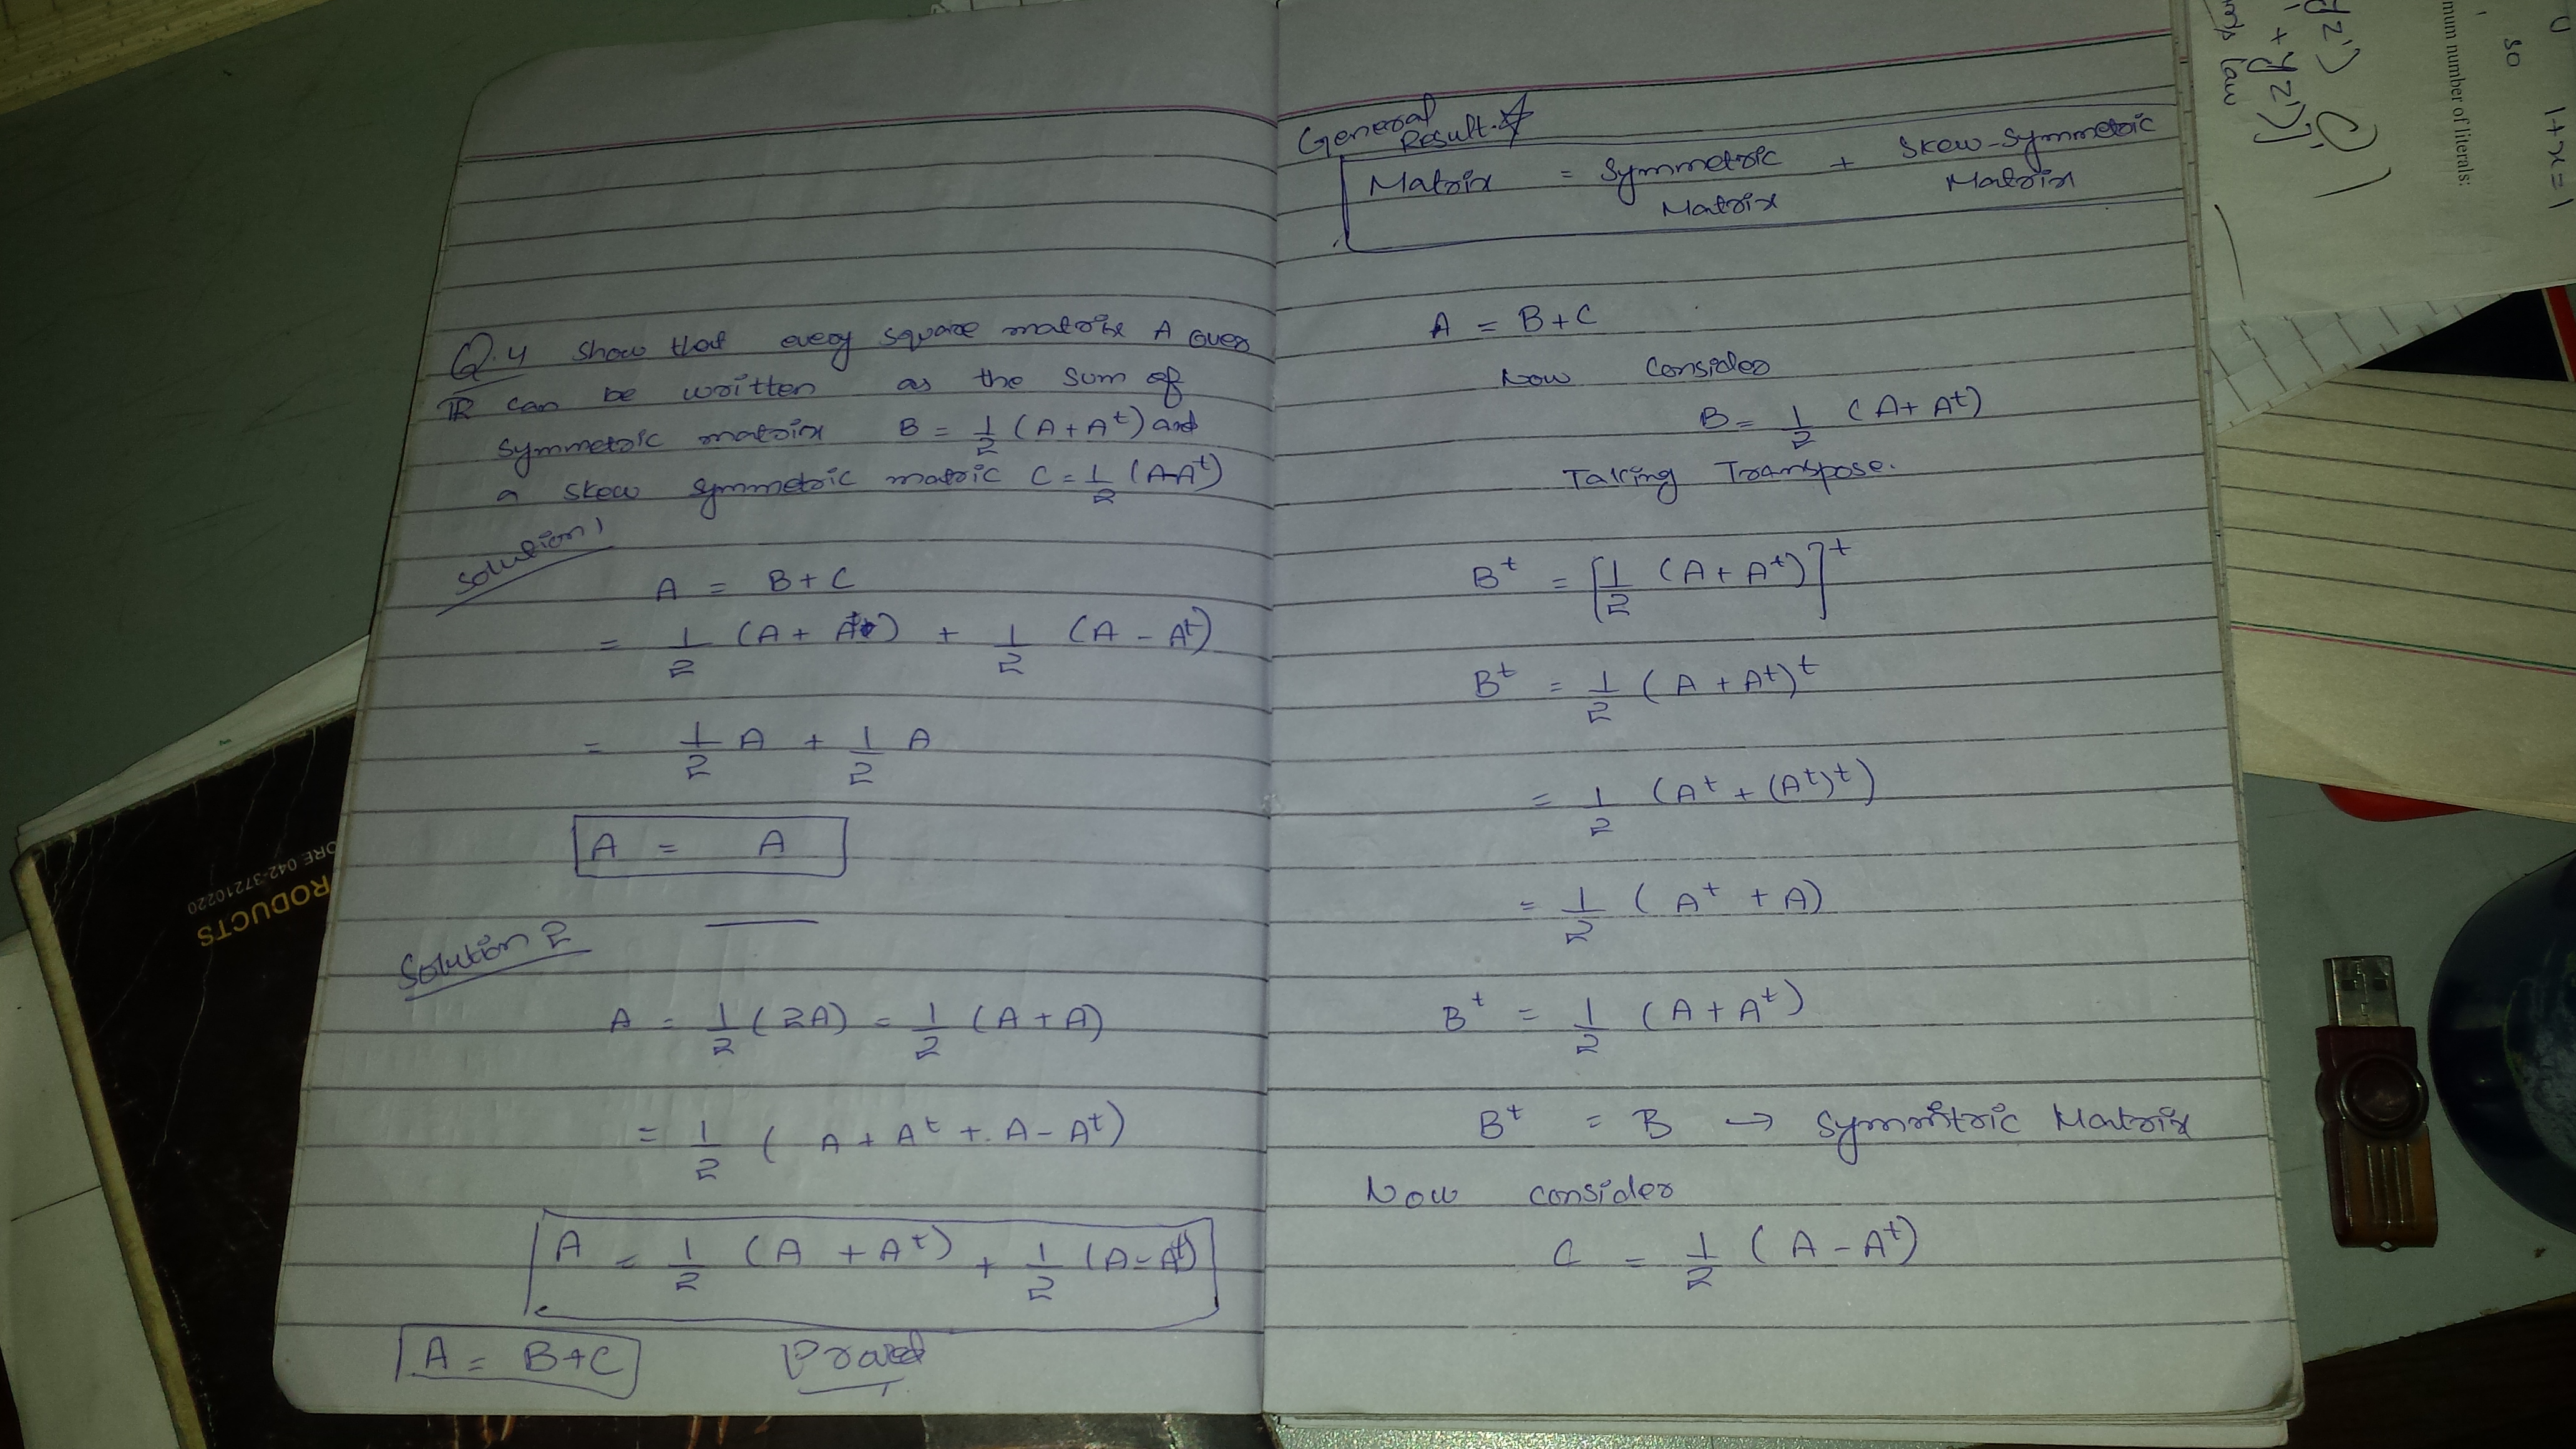 Q.4 Show that every square matrix A over
IR can be written as the sum of
symmetric matrix B = 1/2 (A + A^t) and
a skew symmetric matric C = 1/2 (A-A^t)
Solution 1
A = B+C
= 1/2 (A + A^t) + 1/2 (A - A^t)
= 1/2 A + 1/2 A
A = A
Solution 2
A = 1/2 (2A) = 1/2 (A + A)
= 1/2 ( A + A^t + A - A^t)
A = 1/2 (A + A^t) + 1/2 (A - A^t)
A = B+C Proved
General
Result.☆
Matrix = Symmetric + Skew-Symmetric
Matrix Matrix
A = B+C
Now Consider
B = 1/2 (A + A^t)
Taking Transpose.
B^t = [1/2 (A + A^t)]^t
B^t = 1/2 (A + A^t)^t
= 1/2 (A^t + (A^t)^t)
= 1/2 (A^t + A)
B^t = 1/2 (A + A^t)
B^t = B → Symmitric Matrix
Now consider
C = 1/2 (A - A^t)
RODUCTS
ORE 042-37210220
mum number of literals:
1+x=1
so
law